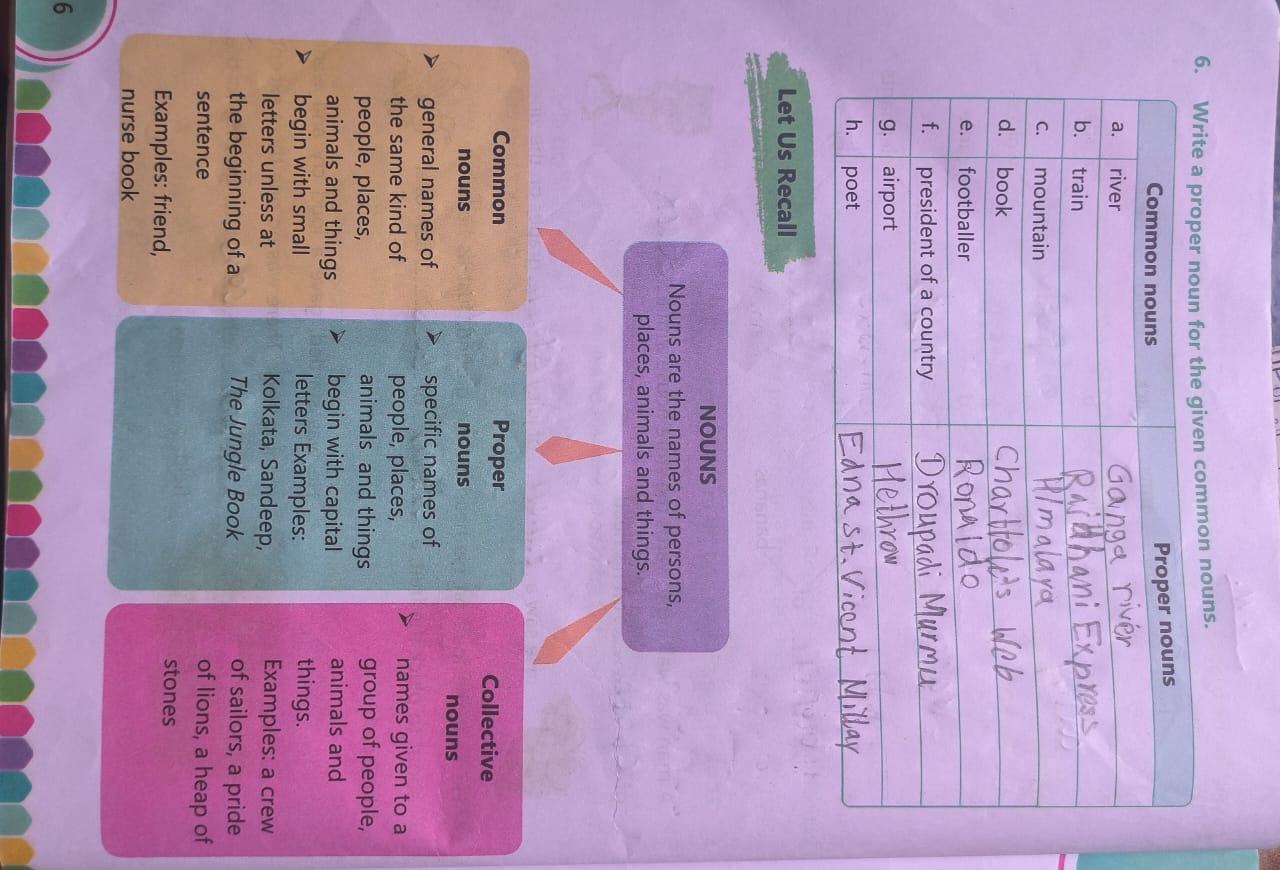 6. Write a proper noun for the given common nouns.
Common nouns Proper nouns
a. river Ganga river
b. train Rajdhani Express
c. mountain Himalaya
d. book Charttolt's Web
e. footballer Ronaldo
f. president of a country Droupadi Murmu
g. airport Hethrow
h. poet Edna st. Vicent Millay
Let Us Recall
NOUNS
Nouns are the names of persons,
places, animals and things.
Common
nouns
➤ general names of
the same kind of
people, places,
animals and things
➤ begin with small
letters unless at
the beginning of a
sentence
Examples: friend,
nurse book
Proper
nouns
➤ specific names of
people, places,
animals and things
➤ begin with capital
letters Examples:
Kolkata, Sandeep,
The Jungle Book
Collective
nouns
➤ names given to a
group of people,
animals and
things.
Examples: a crew
of sailors, a pride
of lions, a heap of
stones
6